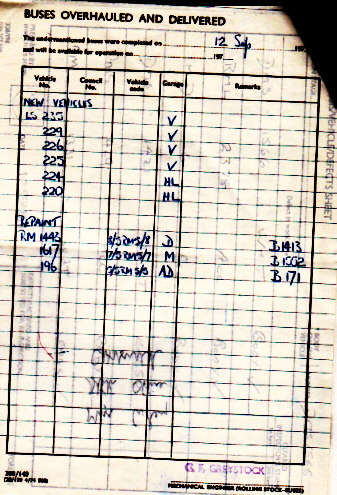 BUSES OVERHAULED AND DELIVERED
The undermentioned buses were completed on 12 Sep 197
and will be available for operation on 197
Vehicle No. Council No. Vehicle code Garage Remarks
NEW VEHICLES
LS 235 V
229 V
226 V
225 V
224 HL
220 HL
REPAINT
RM 1443 8/5RM5/8 D B1413
1617 7/5RM5/7 M B1562
196 7/5RM5/5 AD B171
G. F. GREYSTOCK
MECHANICAL ENGINEER (ROLLING STOCK-BUSES)